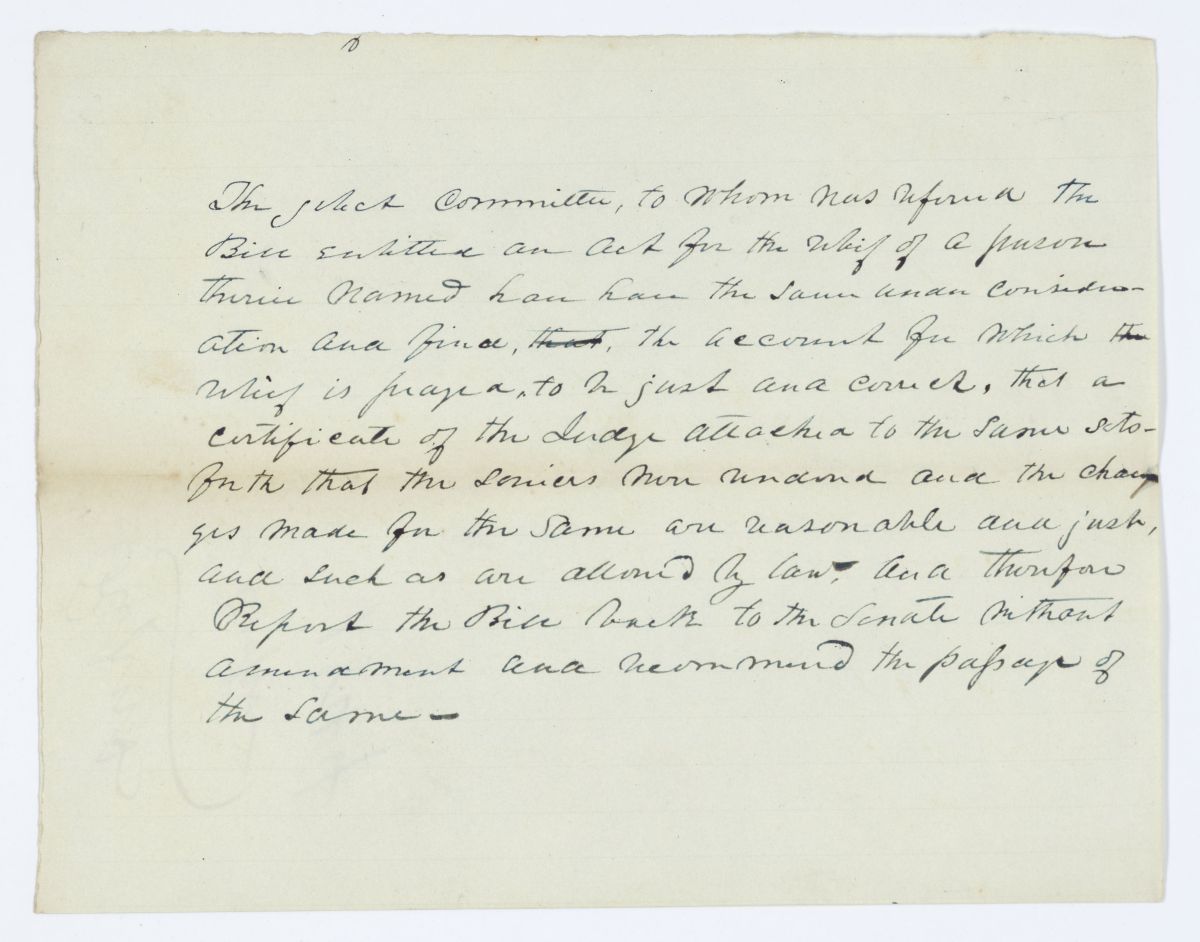 The select Committee, to whom was refered the
Bill entitled an act for the relief of a person
therein named have have the same under consider-
ation and find, that, the account for which the
relief is prayed, to be just and correct, that a
certificate of the Judge attached to the same sets-
forth that the services were rendered and the char-
ges made for the same are reasonable and just,
and such as are allowed by law, and therefore
Report the Bill back to the Senate without
amendment and recommend the passage of
the same —